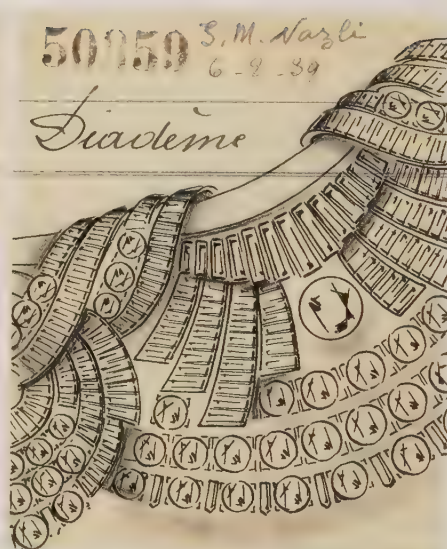 50959 S. M. Nazli
6-2-39
Diadème